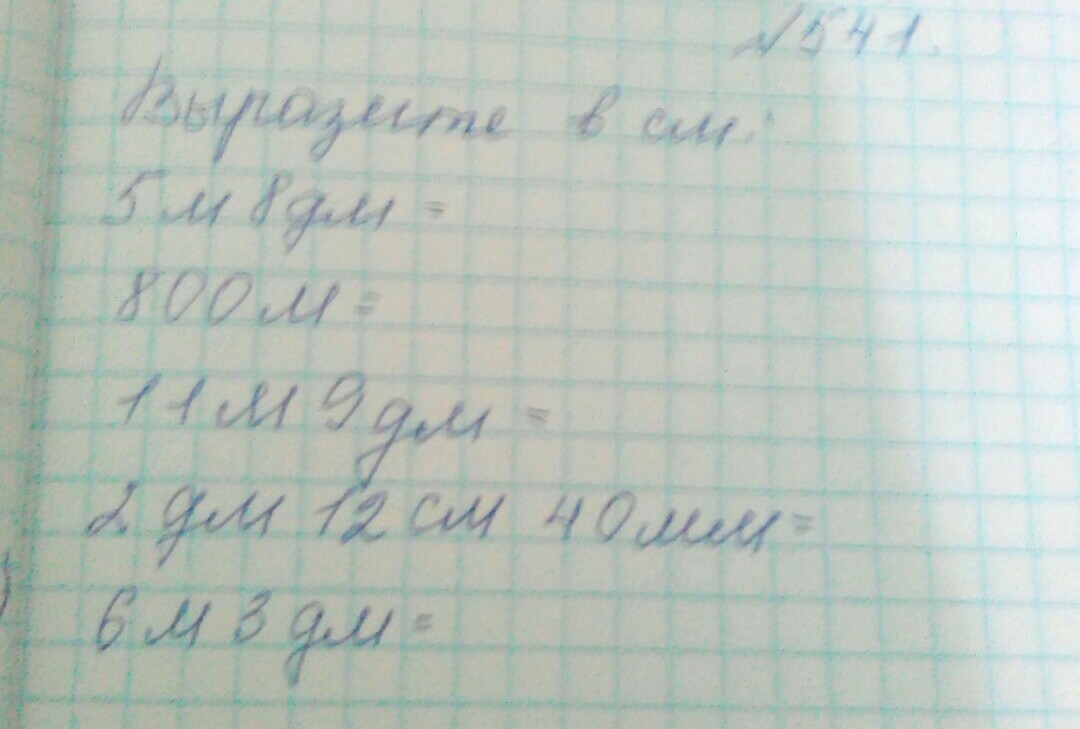 №541.
Выразите в см:
5м 8дм =
800м =
11м 9дм =
2 дм 12 см 40мм =
6 м 3 дм =